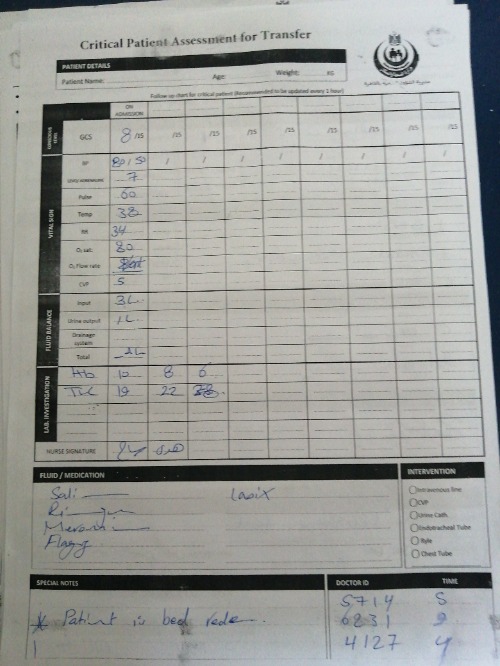 Critical Patient Assessment for Transfer
PATIENT DETAILS
Patient Name: Age: Weight: KG
Follow up chart for critical patient (Recommended to be updated every 1 hour)
ON ADMISSION
GCS 8 /15 /15 /15 /15 /15 /15 /15 /15 /15
VITAL SIGN
BP 80/50 / / / / / / / /
7
Pulse 60
Temp 38
RR 34
O₂ sat. 80
O₂ Flow rate
CVP 5
FLUID BALANCE
Input 3L
Urine output 1L
Drainage system
Total
LAB. INVESTIGATION
Hb 10 8 6
TLC 19 22
NURSE SIGNATURE
FLUID / MEDICATION
INTERVENTION
Lasix
Intravenous line
CVP
Urine Cath.
Endotracheal Tube
Ryle
Chest Tube
SPECIAL NOTES
DOCTOR ID TIME
* Patient is bed
5714 5
6231 9
4127 4